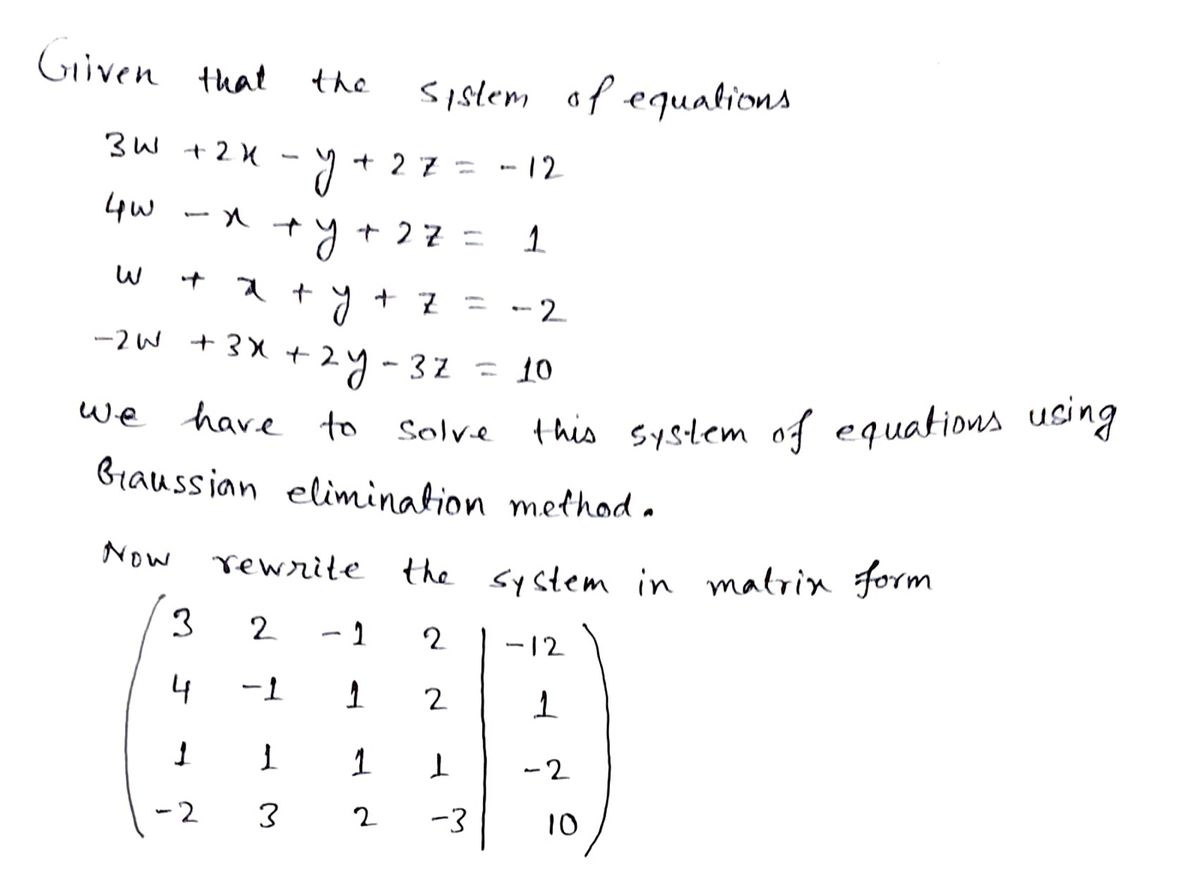 Given that the system of equations
3w + 2x - y + 2z = -12
4w - x + y + 2z = 1
w + x + y + z = -2
-2w + 3x + 2y - 3z = 10
we have to solve this system of equations using
Gaussian elimination method.
Now rewrite the system in matrix form
3 2 -1 2 | -12
4 -1 1 2 | 1
1 1 1 1 | -2
-2 3 2 -3 | 10